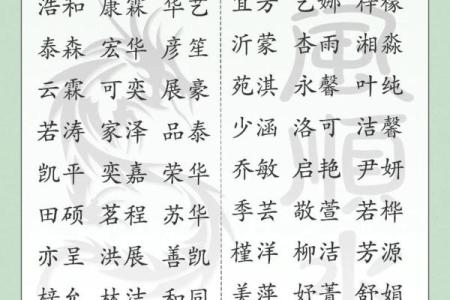 浩和 康霖 华艺 宜芳 艺娜 梓檬
泰森 宏华 彦笙 沂蒙 杏雨 湘淼
云霖 可奕 展豪 苑淇 永馨 叶纯
若涛 家泽 品泰 少涵 洛可 洁馨
凯平 奕嘉 荣华 乔敏 启艳 尹妍
田硕 茗程 苏华 季芸 敬萱 若桦
亦呈 洪展 善凯 槿洋 柳洁 芳源
梓允 林洁 和同 美萍 妤菁 舒娟